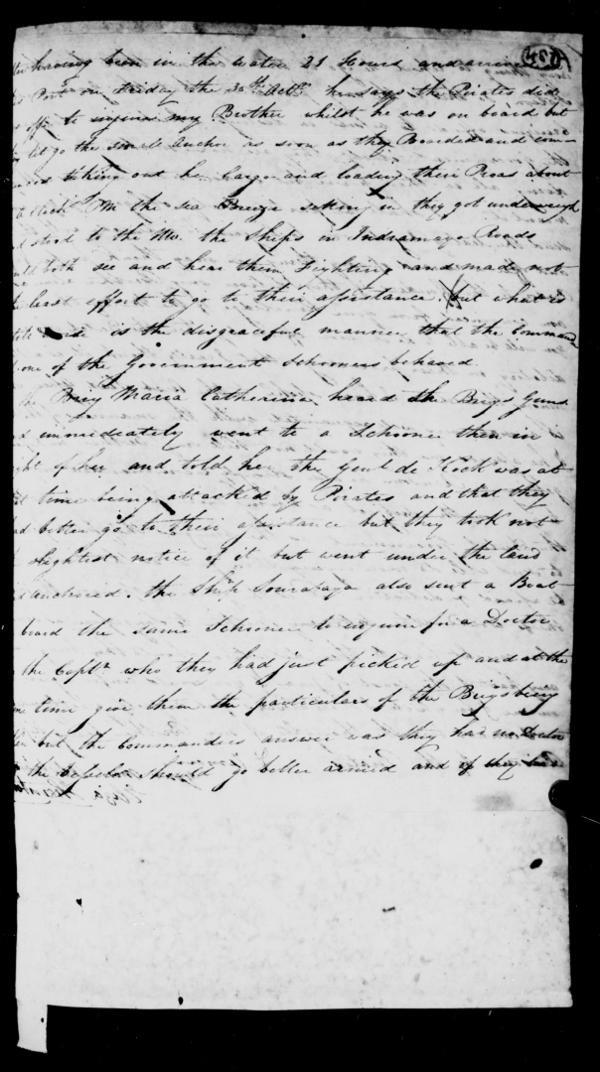 having been in the Water 21 Hours and arrived
Port on Friday the 30th Octr he says the Pirates did
off to my Brother whilst he was on board but
let go the small Anchor as soon as they Boarded and com-
taking out he Cargo and loading their Proas about
On the sea Breeze setting in they got underweigh
stood to the the Ships in Indramayo Roads
both see and hear them Fighting and made not
least effort to go to their assistance. but what is
is the disgraceful manner that the Command
one of the Government Schooners behaved.
Brig Maria Catherina heard the Brigs Guns
immediately went to a Schooner then in
of her and told her the Genl de Kock was at
time being attacked by Pirates and that they
better go to their assistance but they took not
slightest notice of it but went under the land
anchored. the Ship Sourabaya also sent a Boat
board the same Schooner to enquire for a Doctor
the Captn who they had just picked up and at the
time give them the particulars of the Brigs being
but the Commanders answer was they had no Doctor
the Vessels should go better armed and if they